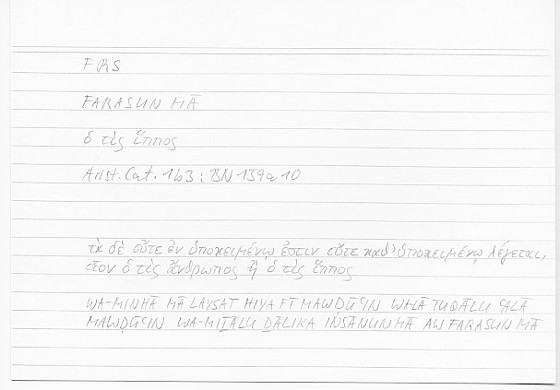 FRS
FARASUN MĀ
ὁ τὶς ἵππος
Arist. Cat. 1b3 : BN 159a10
τὰ δὲ οὔτε ἐν ὑποκειμένῳ ἐστιν οὔτε καθ' ὑποκειμένῳ λέγεται,
οἷον ὁ τὶς ἄνθρωπος ἢ ὁ τὶς ἵππος
WA-MINHĀ MĀ LAYSAT HIYA FĪ MAWḌŪʿIN WALĀ TUQĀLU ʿALĀ
MAWḌŪʿIN WA-MIṮĀLU ḎĀLIKA INSĀNUN MĀ AW FARASUN MĀ